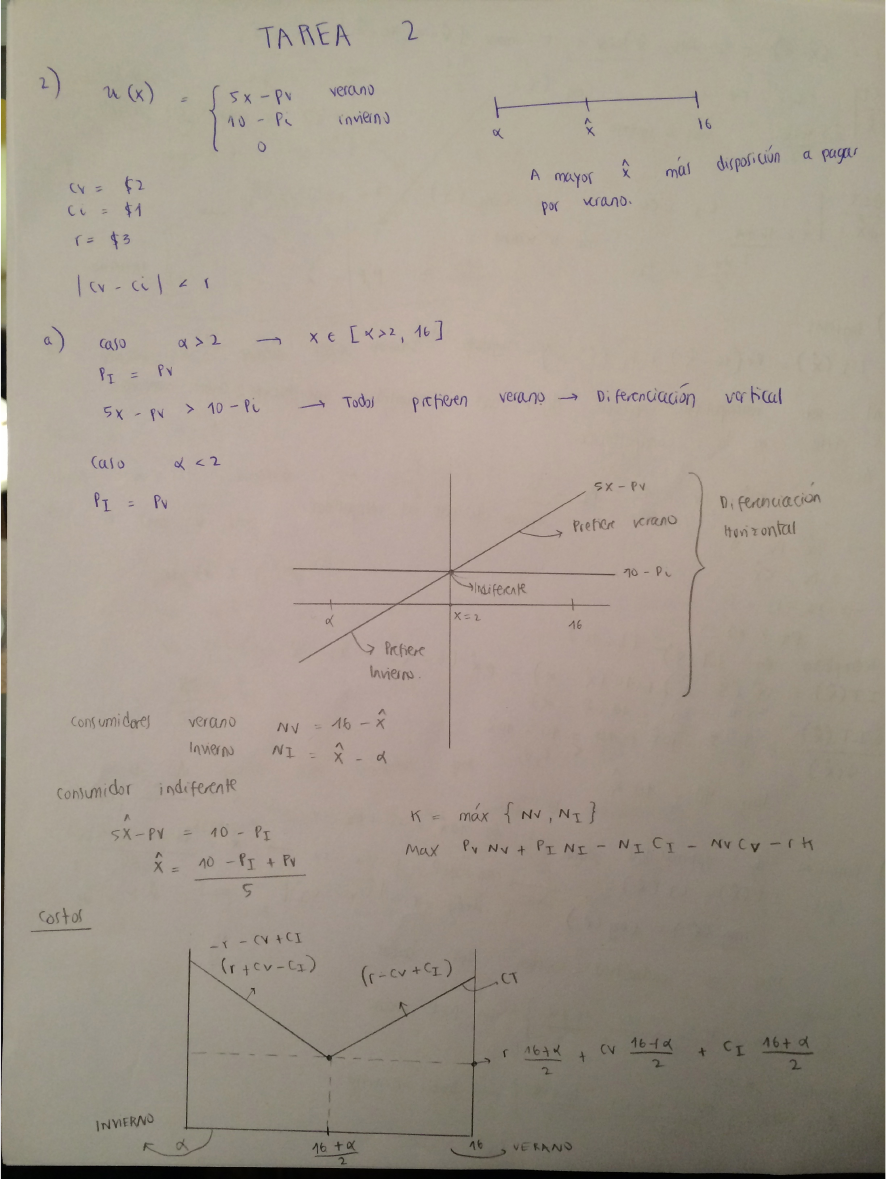 TAREA 2
2) u(x) = { 5x - Pv verano
10 - Pi invierno
0
α x̂ 16
A mayor x̂ más disposición a pagar
por verano.
Cv = $2
Ci = $1
r = $3
|Cv - Ci| < r
a) caso α > 2 → x ∈ [α>2, 16]
P_I = Pv
5x - Pv > 10 - Pi → Todos prefieren verano → Diferenciación vertical
Caso α < 2
P_I = Pv
5x - Pv
Prefiere verano
10 - Pi
Indiferente
α x=2 16
Prefiere
Invierno.
Diferenciación
Horizontal
Consumidores verano Nv = 16 - x̂
Invierno N_I = x̂ - α
Consumidor indiferente
5x̂ - Pv = 10 - P_I
x̂ = (10 - P_I + Pv)/5
K = máx {Nv, N_I}
Max Pv Nv + P_I N_I - N_I C_I - Nv Cv - r K
Costos
- r - Cv + C_I
(r + Cv - C_I)
(r - Cv + C_I)
CT
r (16+α)/2 + Cv (16+α)/2 + C_I (16+α)/2
INVIERNO α (16+α)/2 16 VERANO